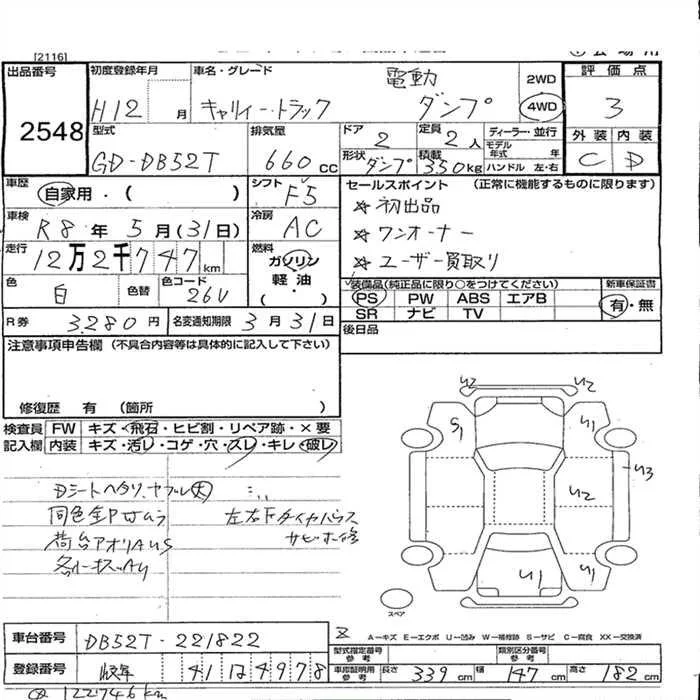 [2116]
出品番号 初度登録年月 車名・グレード 電動 2WD 評価点
2548 H12 月 キャリィートラック ダンプ 4WD 3
型式 排気量 ドア 定員 ディーラー・並行 外装 内装
GD-DB52T 660cc 2 2人 モデル年式 年 C D
形状 ダンプ 積載 350kg ハンドル 左・右
車歴 自家用・( ) シフト F5 セールスポイント (正常に機能するものに限ります)
車検 R8年5月(31日) 冷房 AC ☆初出品
走行 12万2千747km 燃料 ガソリン ☆ワンオーナー
軽油 ☆ユーザー買取り
色 白 色替 色コード 26U ( ・ )
装備品(純正品に限り○をつけてください) 新車保証書
PS PW ABS エアB 有・無
SR ナビ TV
R券 3,280円 名変通知期限 3月31日
後日品
注意事項申告欄 (不具合内容等は具体的に記入して下さい)
修復歴 有 (箇所 )
検査員 FW キズ・飛石・ヒビ割・リペア跡・×要
記入欄 内装 キズ・汚レ・コゲ・穴・スレ・キレ・破レ
U2 U2
S1 U1
U3
U2
U1 U1
Dシートヘタリ、ヤブレ大
同色全Pサムラ 左右下ダイヤハウス
荷台アオリAUS サビホ修
スペア
A－キズ E－エクボ U－凹み W－補修跡 S－サビ C－腐食 XX－交換済
車台番号 DB52T-221822 型式指定番号 参考 類別区分番号 参考
登録番号 41 4978 車庫証明用 参考 長さ 339cm 幅 147cm 高さ 182cm
122746km